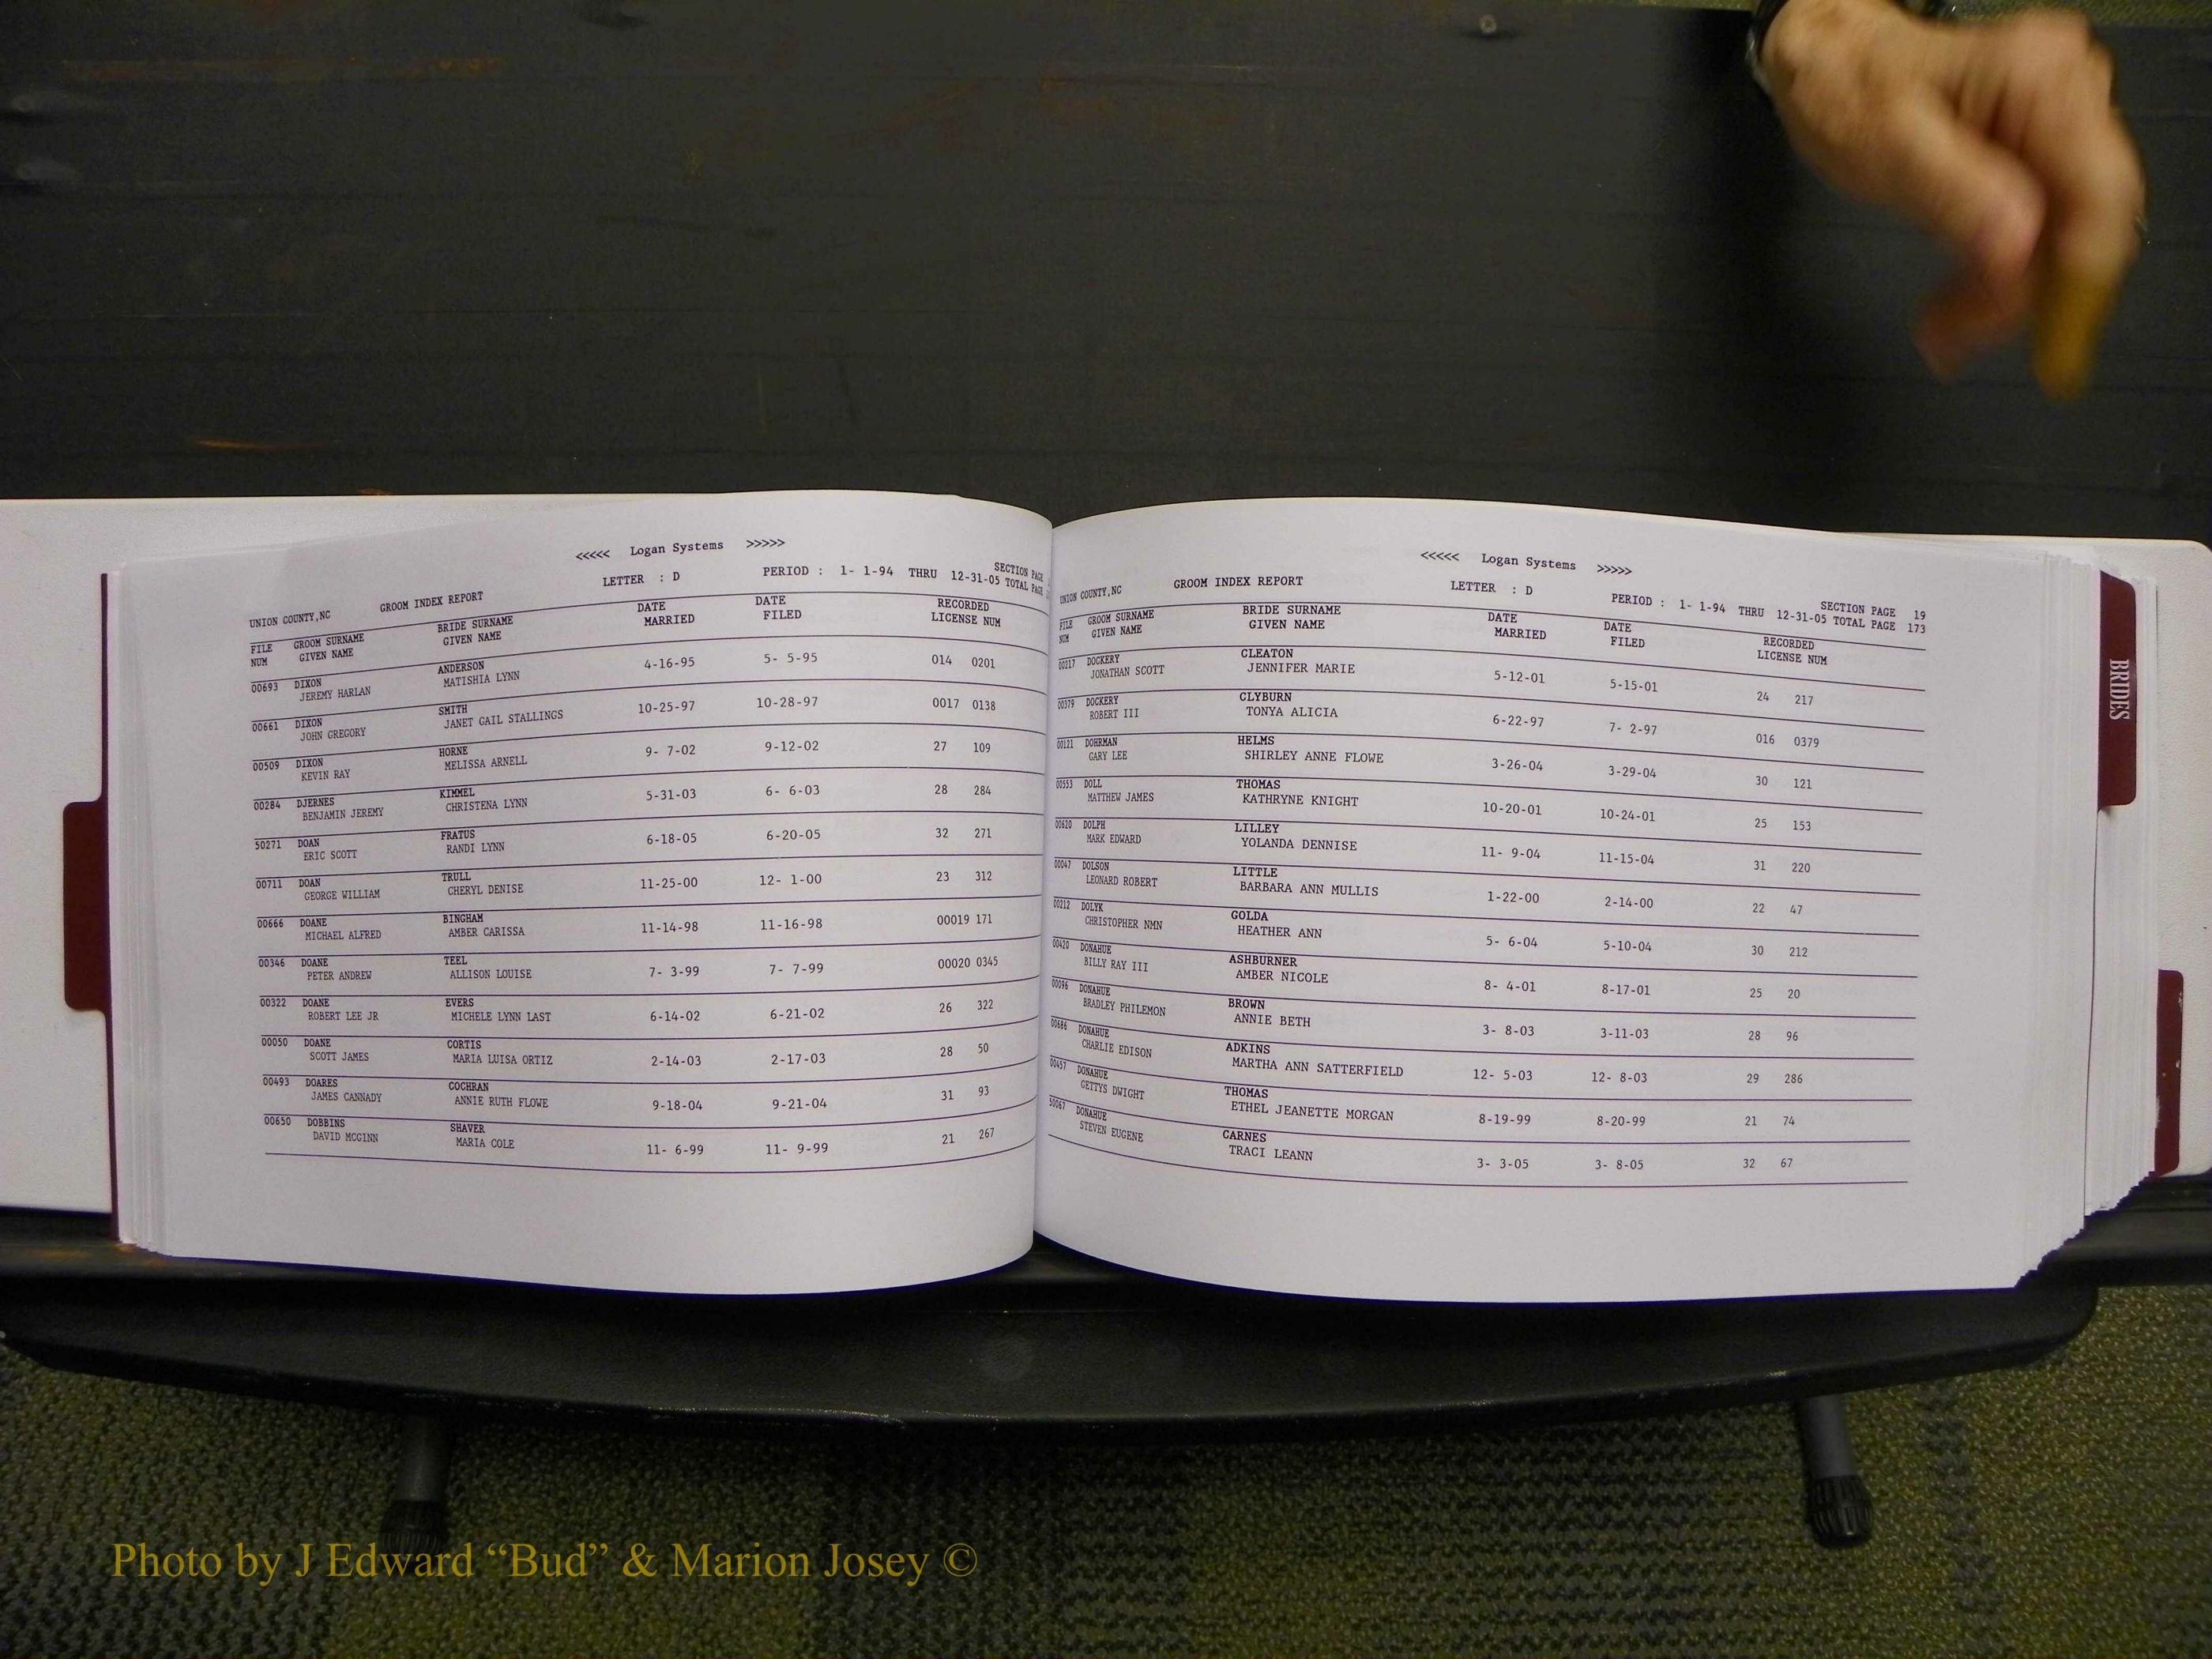 <<<<< Logan Systems >>>>>
UNION COUNTY,NC GROOM INDEX REPORT LETTER : D PERIOD : 1- 1-94 THRU 12-31-05 SECTION PAGE
TOTAL PAGE
FILE GROOM SURNAME BRIDE SURNAME DATE DATE RECORDED
NUM GIVEN NAME GIVEN NAME MARRIED FILED LICENSE NUM
00693 DIXON ANDERSON 4-16-95 5- 5-95 014 0201
JEREMY HARLAN MATISHIA LYNN
00661 DIXON SMITH 10-25-97 10-28-97 0017 0138
JOHN GREGORY JANET GAIL STALLINGS
00509 DIXON HORNE 9- 7-02 9-12-02 27 109
KEVIN RAY MELISSA ARNELL
00284 DJERNES KIMMEL 5-31-03 6- 6-03 28 284
BENJAMIN JEREMY CHRISTENA LYNN
50271 DOAN FRATUS 6-18-05 6-20-05 32 271
ERIC SCOTT RANDI LYNN
00711 DOAN TRULL 11-25-00 12- 1-00 23 312
GEORGE WILLIAM CHERYL DENISE
00666 DOANE BINGHAM 11-14-98 11-16-98 00019 171
MICHAEL ALFRED AMBER CARISSA
00346 DOANE TEEL 7- 3-99 7- 7-99 00020 0345
PETER ANDREW ALLISON LOUISE
00322 DOANE EVERS 6-14-02 6-21-02 26 322
ROBERT LEE JR MICHELE LYNN LAST
00050 DOANE CORTIS 2-14-03 2-17-03 28 50
SCOTT JAMES MARIA LUISA ORTIZ
00493 DOARES COCHRAN 9-18-04 9-21-04 31 93
JAMES CANNADY ANNIE RUTH FLOWE
00650 DOBBINS SHAVER 11- 6-99 11- 9-99 21 267
DAVID MCGINN MARIA COLE
<<<<< Logan Systems >>>>>
UNION COUNTY,NC GROOM INDEX REPORT LETTER : D PERIOD : 1- 1-94 THRU 12-31-05 SECTION PAGE 19
TOTAL PAGE 173
FILE GROOM SURNAME BRIDE SURNAME DATE DATE RECORDED
NUM GIVEN NAME GIVEN NAME MARRIED FILED LICENSE NUM
00217 DOCKERY CLEATON 5-12-01 5-15-01 24 217
JONATHAN SCOTT JENNIFER MARIE
00379 DOCKERY CLYBURN 6-22-97 7- 2-97 016 0379
ROBERT III TONYA ALICIA
00121 DOHRMAN HELMS 3-26-04 3-29-04 30 121
GARY LEE SHIRLEY ANNE FLOWE
00553 DOLL THOMAS 10-20-01 10-24-01 25 153
MATTHEW JAMES KATHRYNE KNIGHT
00620 DOLPH LILLEY 11- 9-04 11-15-04 31 220
MARK EDWARD YOLANDA DENNISE
00047 DOLSON LITTLE 1-22-00 2-14-00 22 47
LEONARD ROBERT BARBARA ANN MULLIS
00212 DOLYK GOLDA 5- 6-04 5-10-04 30 212
CHRISTOPHER NMN HEATHER ANN
00420 DONAHUE ASHBURNER 8- 4-01 8-17-01 25 20
BILLY RAY III AMBER NICOLE
00096 DONAHUE BROWN 3- 8-03 3-11-03 28 96
BRADLEY PHILEMON ANNIE BETH
00686 DONAHUE ADKINS 12- 5-03 12- 8-03 29 286
CHARLIE EDISON MARTHA ANN SATTERFIELD
00457 DONAHUE THOMAS 8-19-99 8-20-99 21 74
GETTYS DWIGHT ETHEL JEANETTE MORGAN
50067 DONAHUE CARNES 3- 3-05 3- 8-05 32 67
STEVEN EUGENE TRACI LEANN
BRIDES
Photo by J Edward “Bud” & Marion Josey ©